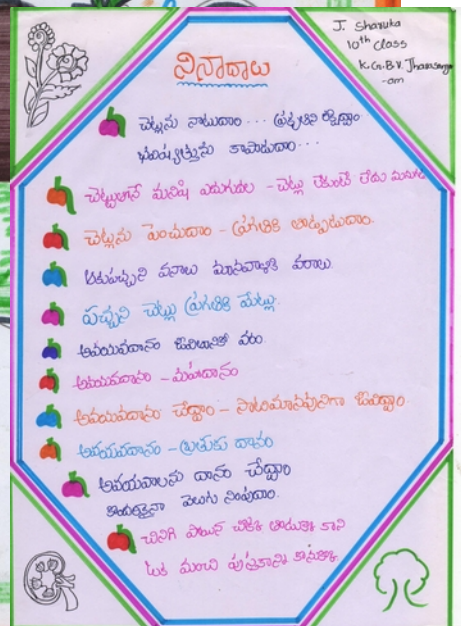 J. Sharuka
10th class
K.G.B.V. Jharasangam
-am
నినాదాలు
చెట్లను నాటుదాం... ప్రకృతిని రక్షిద్దాం
భవిష్యత్తును కాపాడుదాం...
చెట్టుతోనే మనిషి ఎదుగుదల - చెట్లు లేకుంటే లేదు
చెట్లను పెంచుదాం - ప్రగతికి తోడ్పడుదాం.
ఆకుపచ్చని వనాలు మానవాళికి వరాలు.
పచ్చని చెట్లు ప్రగతికి మెట్లు.
అవయవదానం జీవితానికో వరం.
అవయవదానం - మహాదానం
అవయవదానం చేద్దాం - సాటిమానవునిగా జీవిద్దాం.
అవయవదానం - బ్రతుకు దానం
అవయవాలను దానం చేద్దాం
కొందరికైనా వెలుగు నింపుదాం.
చినిగి పోయిన చొక్కా తొడుక్కో కాని
ఓక మంచి పుస్తకాన్ని కొనుక్కో